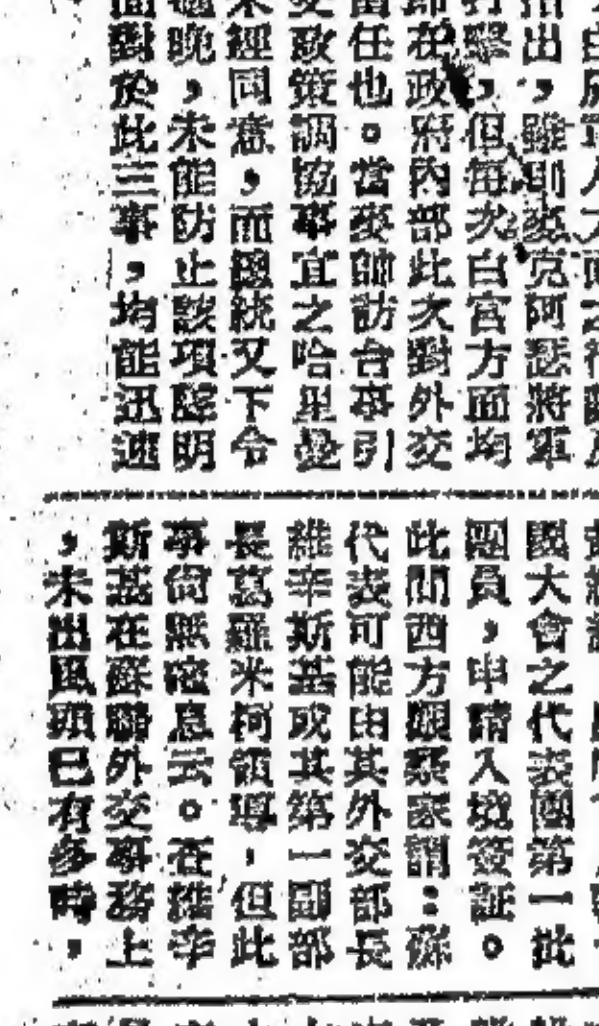 指出，雖則麥克阿瑟將軍
打擊，但每次白宮方面均
即在政府內部此次對外交
留任也。當麥帥訪台事引
交政策調協事宜之哈里曼
未經同意，而國統又下令
晚，未能防止該項聲明
面對於此三事，均能迅速
國大會之代表團第一批
團員，申請入境簽証。
此間西方觀察家謂：蘇
代表可能由其外交部長
維辛斯基或其第一副部
長葛羅米柯領導，但此
事尙無確息云。在維辛
斯基在蘇聯外交事務上
，未出風頭已有多時，